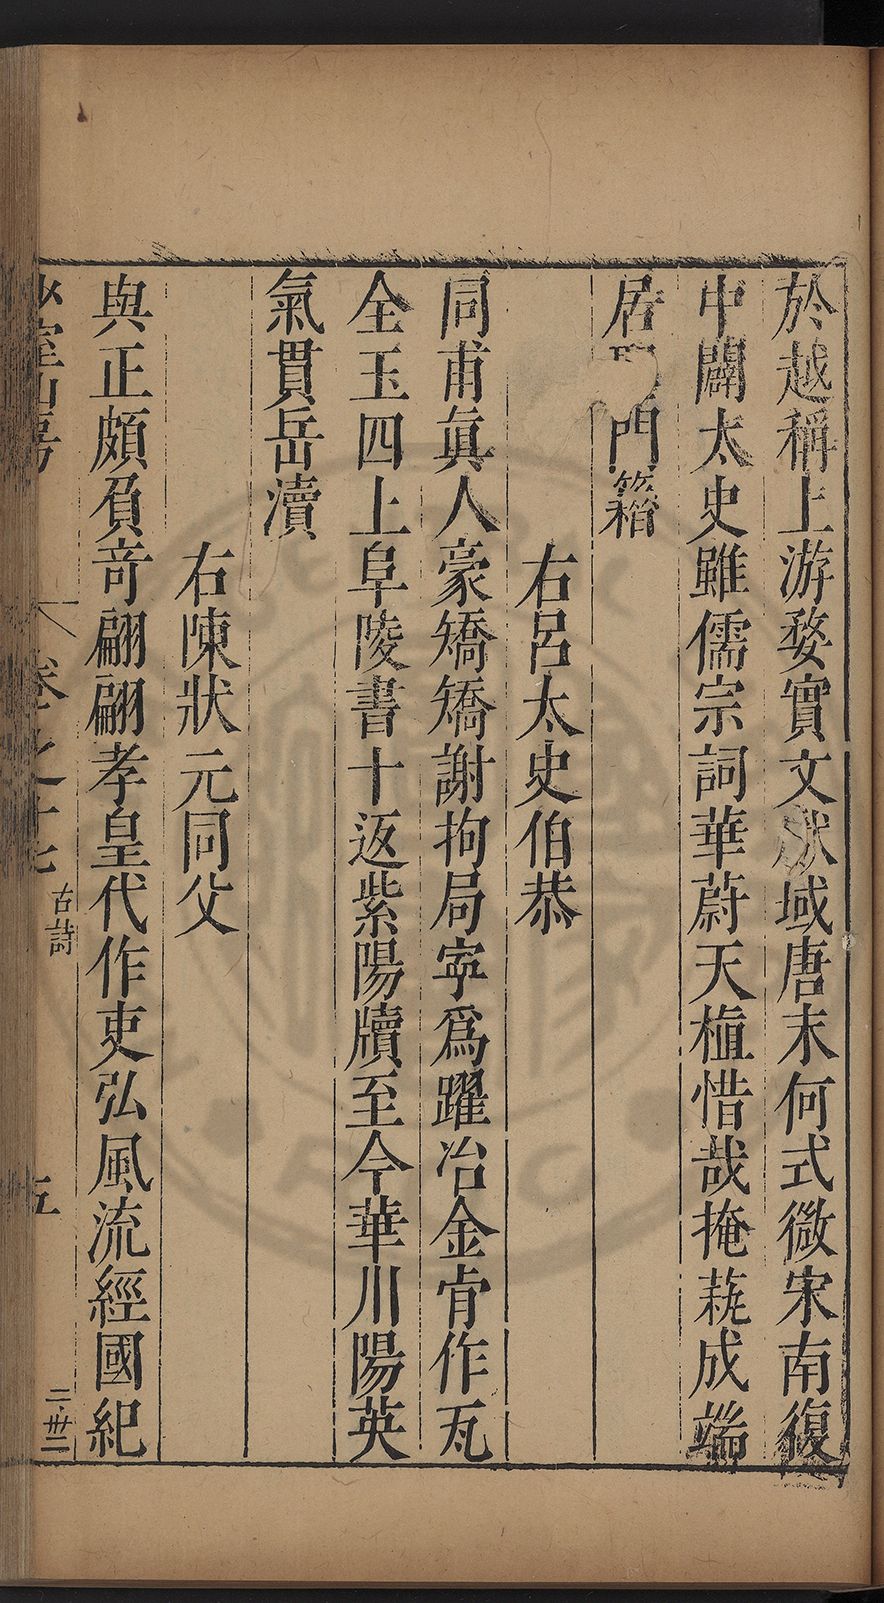 於越稱上游婺實文獻域唐末何式微宋南復
中闢太史雖儒宗詞華蔚天植惜哉掩蓺成端
居門籍
右呂太史伯恭
同甫眞人豪矯矯謝拘局寜爲躍冶金肯作瓦
全玉四上阜陵書十返紫陽牘至今華川陽英
氣貫岳瀆
右陳狀元同父
與正頗負竒翩翩孝皇代作吏弘風流經國紀
少室山房
卷之十七
古詩
五
二·卅二